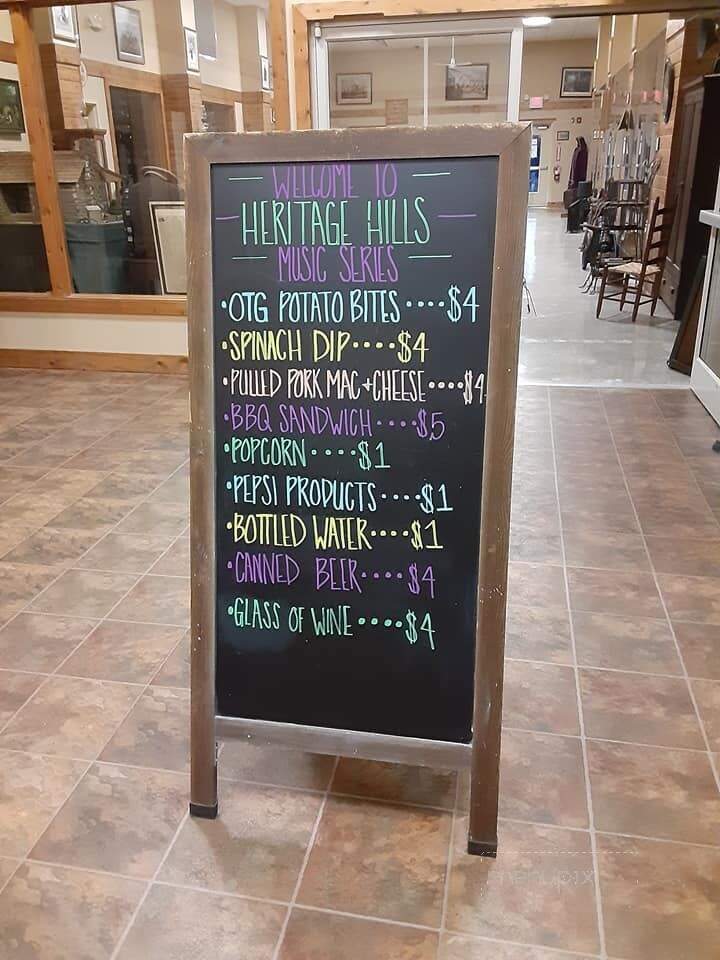 WELCOME TO
HERITAGE HILLS
MUSIC SERIES
•OTG POTATO BITES ....$4
•SPINACH DIP....$4
•PULLED PORK MAC+CHEESE....$4
•BBQ SANDWICH....$5
•POPCORN....$1
•PEPSI PRODUCTS....$1
•BOTTLED WATER....$1
•CANNED BEER....$4
•GLASS OF WINE....$4
menupix